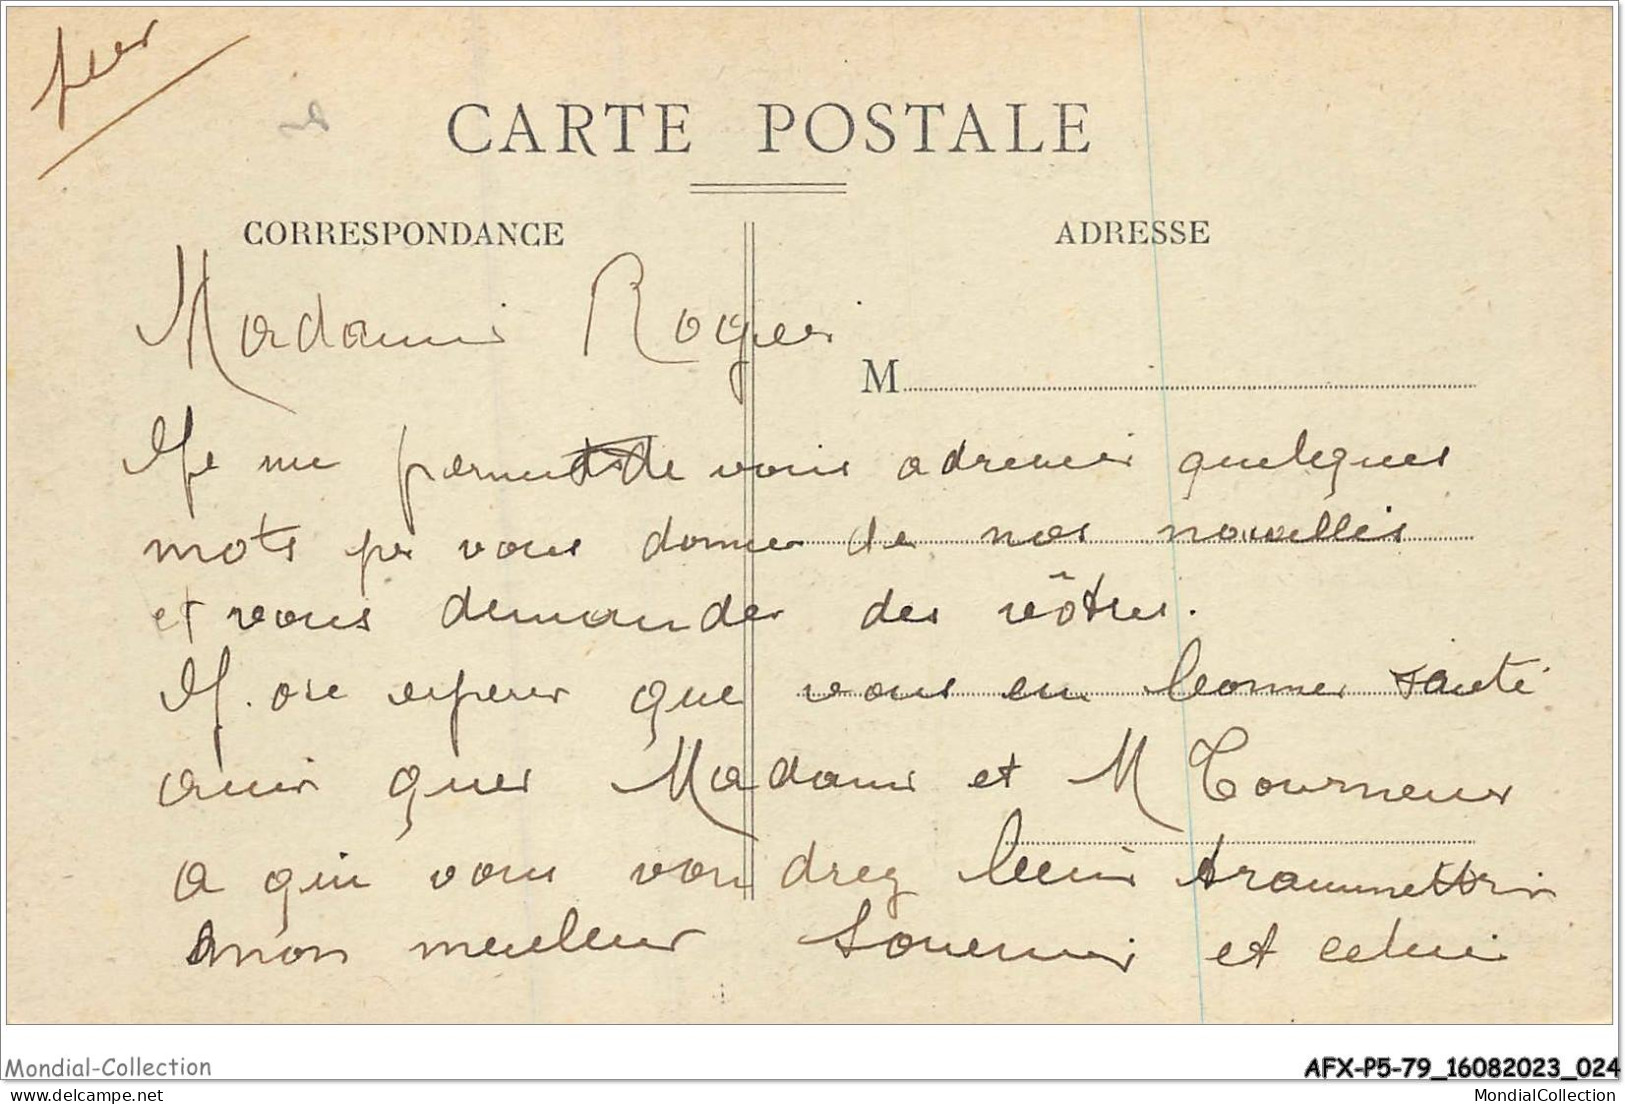 CARTE POSTALE
CORRESPONDANCE
ADRESSE
M
Madame Roger
Je me permet de vous adresser quelques
mots pr vous donner de nos nouvelles
et vous demander des vôtres.
J'ose espérer que vous en bonne santé
ainsi que Madame et M Tourneur
a qui vous voudrez bien transmettre
mon meilleur souvenir et celui
Mondial-Collection
AFX-P5-79_16082023_024
delcampe.net
MondialCollection